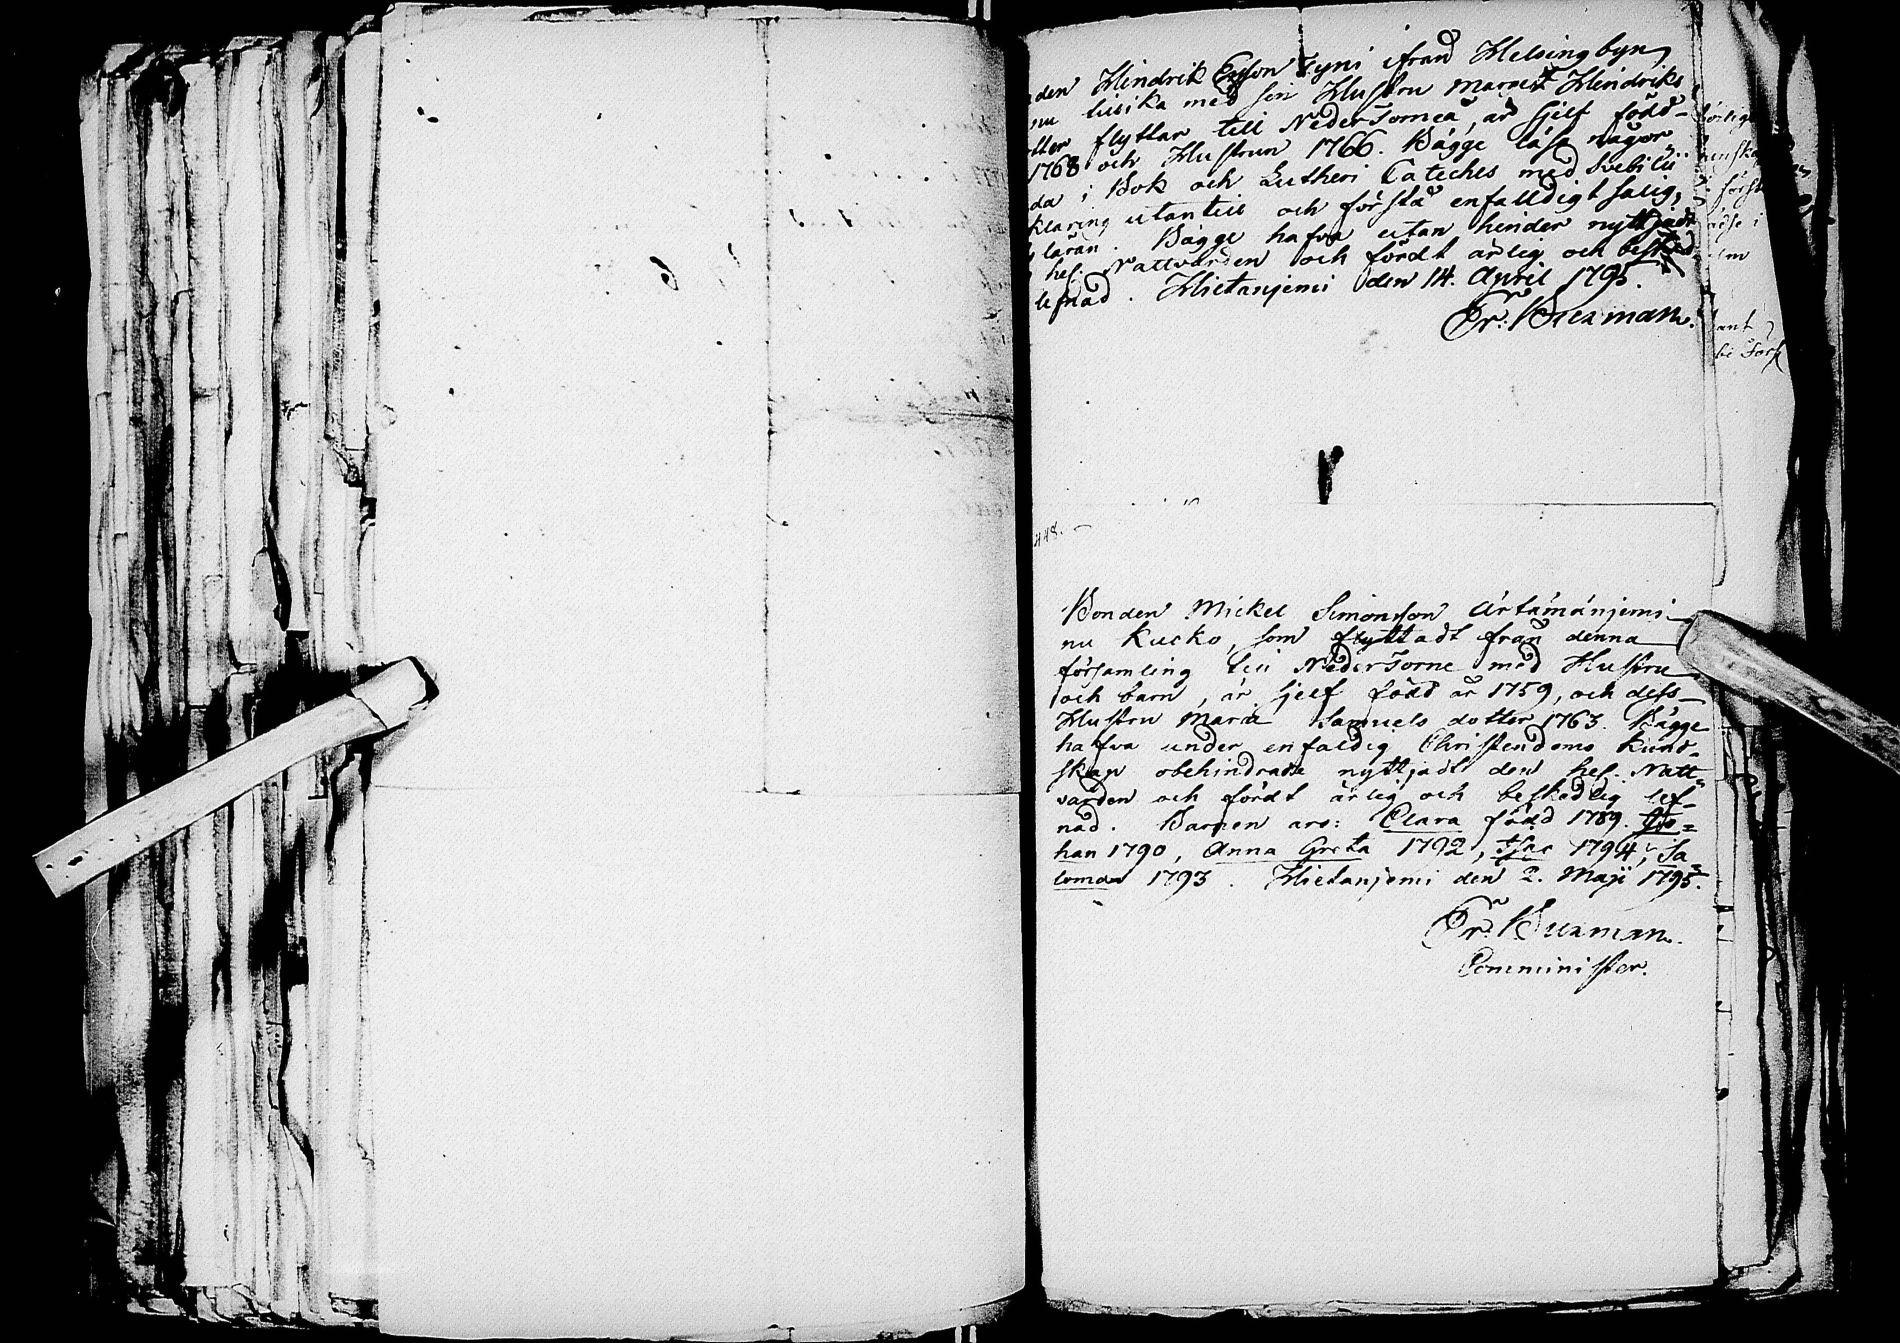 den Hindrik Ersson Tyni ifrå Helsingbyn
nu luika med sin Hustru Margt Hindriks
tter flyttar till NederTorneå, är sjelf född
1768 och Hustrun 1766. Bägge läsa någor-
da i Bok och Lutheri Cateches med Svebilii
klaring utantill och förstå enfalldigt salig,
läran. Bägge hafva utan hinder nyttjadt
hel. Nattvarden och fördt ärlig och besked
lefnad. Hietanjemi den 14. April 1795.
Er: Burman.
448.
Bonden Mickel Simonsson Ärtämänjemi
nu Kucko, som flyttadt från denna
församling till NederTorne med Hustru
och barn, är sjelf född år 1759, och dess
Hustru Maria Samuels dotter 1763. Bägge
hafva under enfaldig Christendoms kund-
skap obehindrade nyttjadt den hel. Natt-
varden och fördt ärlig och beskedlig lef-
nad. Barnen äro: Clara född 1789. Jo=
han 1790, Anna Greta 1792, Isac 1794, Sa-
loman 1793. Hietanjemi den 2. Maji 1795.
Er: Burman.
Comminister.